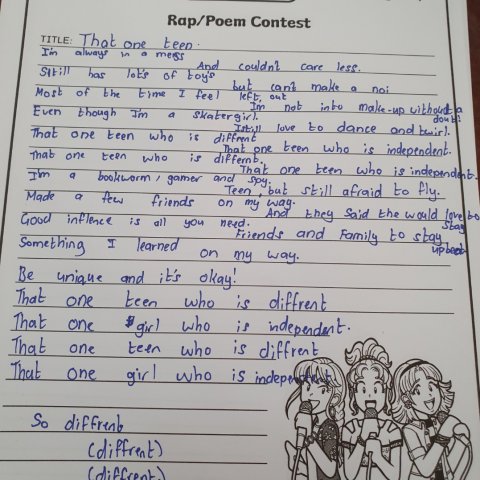 Rap/Poem Contest
TITLE: That one teen.
I'm always in a mess
And couldn't care less.
Still has lots of toys
but can't make a noi
Most of the time I feel left out
I'm not into make-up without a doubt!
Even though I'm a skatergirl.
I still love to dance and twirl.
That one teen who is diffrent
That one teen who is independent.
That one teen who is differnt.
That one teen who is independent.
I'm a bookworm, gamer and spy.
Teen, but still afraid to fly.
Made a few friends on my way.
And they said the would love to stay
Good inflence is all you need.
Friends and Family to stay upbeat
Something I learned on my way.
Be unique and it's okay!
That one teen who is diffrent
That one girl who is independent.
That one teen who is diffrent
That one girl who is independent
So diffrent
(diffrent)
(diffrent)